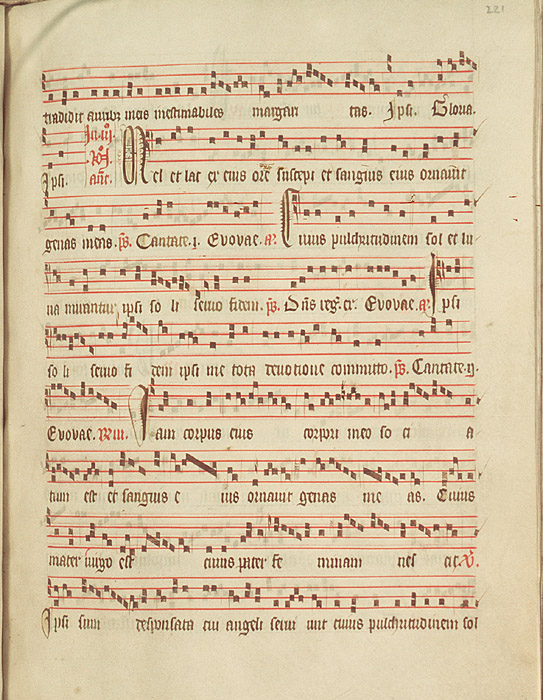 221
tradidit auribus meis inestimabiles margari tas. Ipsi. Gloria.
In iij.
No.
Ipsi. ant. Mel et lac ex eius ore suscepi et sanguis eius ornavit
genas meas. ps. Cantate. j. Evovae. a. Cuius pulchritudinem sol et lu
na mirantur ipsi so li servo fidem. ps. Dns reg. ex. Evovae. a. Ipsi
so li servo fi dem ipsi me tota devotione committo. ps. Cantate. ij.
Evovae. Iam corpus eius corpori meo so ci a
tum est et sanguis e ius ornavit genas me as. Cuius
mater virgo est cuius pater fe minam nes cit. V.
Ipsi sum desponsata cui angeli servi unt cuius pulchritudinem sol